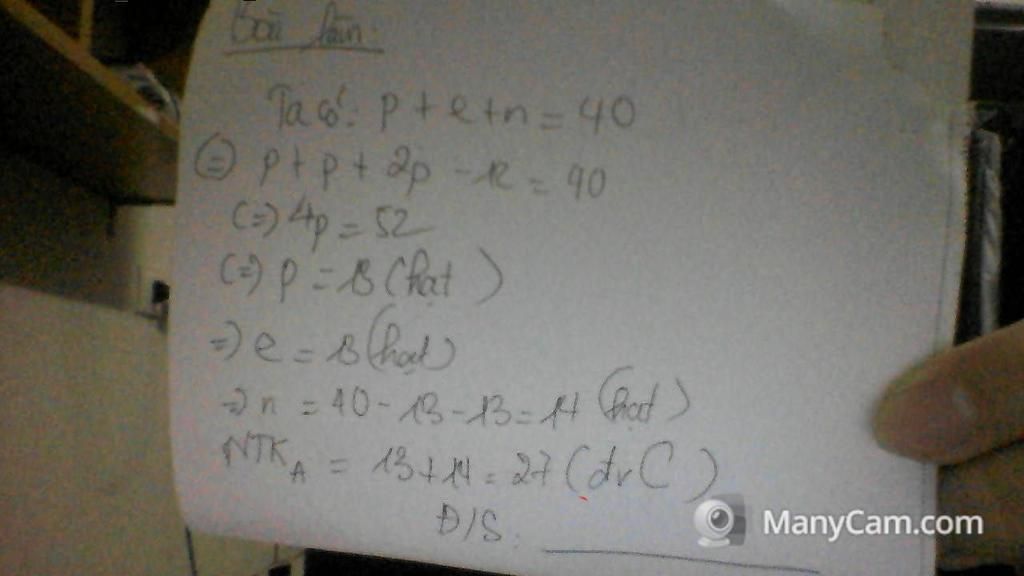 Bài làm:
Ta có: p + e + n = 40
(=) p + p + 2p - 12 = 40
(=) 4p = 52
(=) p = 13 (hạt)
=) e = 13 (hạt)
=) n = 40 - 13 - 13 = 14 (hạt)
NTK_A = 13 + 14 = 27 (đvC)
Đ/S:
ManyCam.com